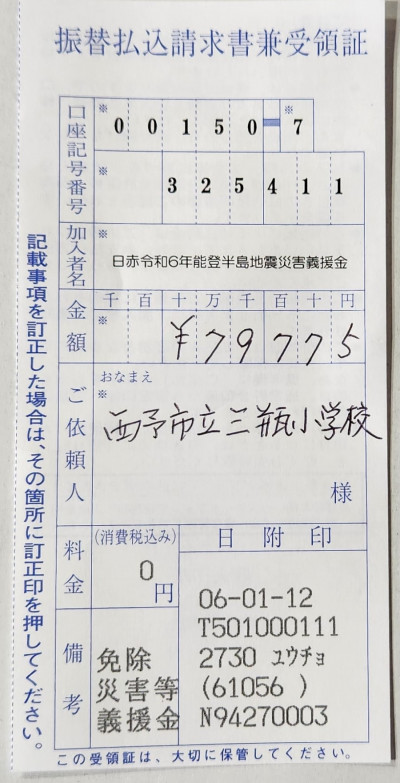 振替払込請求書兼受領証
口座記号番号
※
00150-※7
※
325411
加入者名
※
日赤令和6年能登半島地震災害義援金
金額
千百十万千百十円
※
¥79775
ご依頼人
おなまえ
※
西予市立三瓶小学校
様
料金
(消費税込み)
0
円
日附印
06-01-12
T501000111
2730 ユウチョ
(61056 )
N94270003
備考
免除
災害等
義援金
この受領証は、大切に保管してください。
記載事項を訂正した場合は、その箇所に訂正印を押してください。